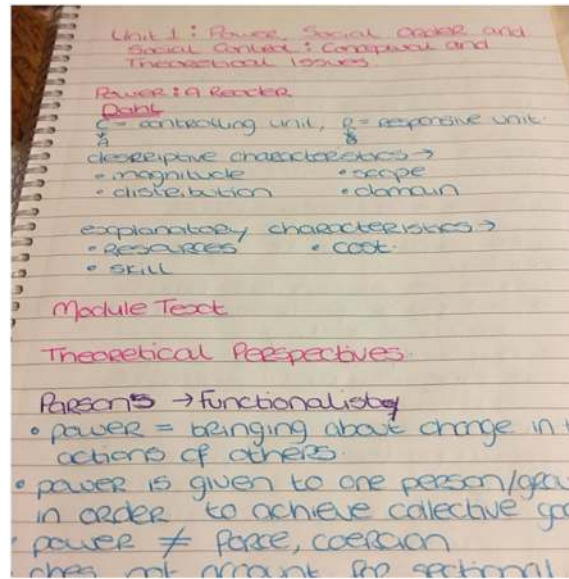 Unit 1: Power Social Order and
Social Control: Conceptual and
Theoretical Issues
Power: A Reader
Dahl
C = controlling unit, R = responsive unit.
A B
descriptive characteristics →
• magnitude • scope
• distribution • domain
explanatory characteristics →
• Resources • cost.
• skill
Module Text
Theoretical Perspectives
Parsons → Functionalist
• power = bringing about change in
actions of others.
• power is given to one person/grou
in order to achieve collective goa
• power ≠ force, coercion
does not account for sectional